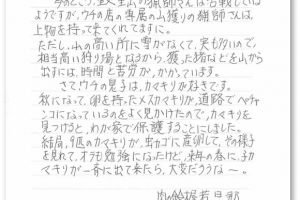 今のところ、愛里山の猟師さんは苦戦している
ようですが、ウチの店の専属の山獲りの猟師さんは、
上物を持って来てくれてますに。
ただし、山の高い所に雪がなくて、実も多いので、
相当高い狩り場となるから、獲った猪などを山から
出すには、時間と苦労が、かかっています。
さて、ウチの息子は、カマキリが好きです。
秋になって、卵を持ったメスカマキリが、道路でペチャ
ンコになっているのをよく見かけたので、カマキリを
見つけると、わが家で保護することにしました。
結局、9匹のカマキリが、虫カゴに産卵して、その様子
を見れて、オラも勉強になったけど、来年の春に、子カ
マキリが一斉に出て来たら、大変だろうな〜。
肉の鈴
若旦那